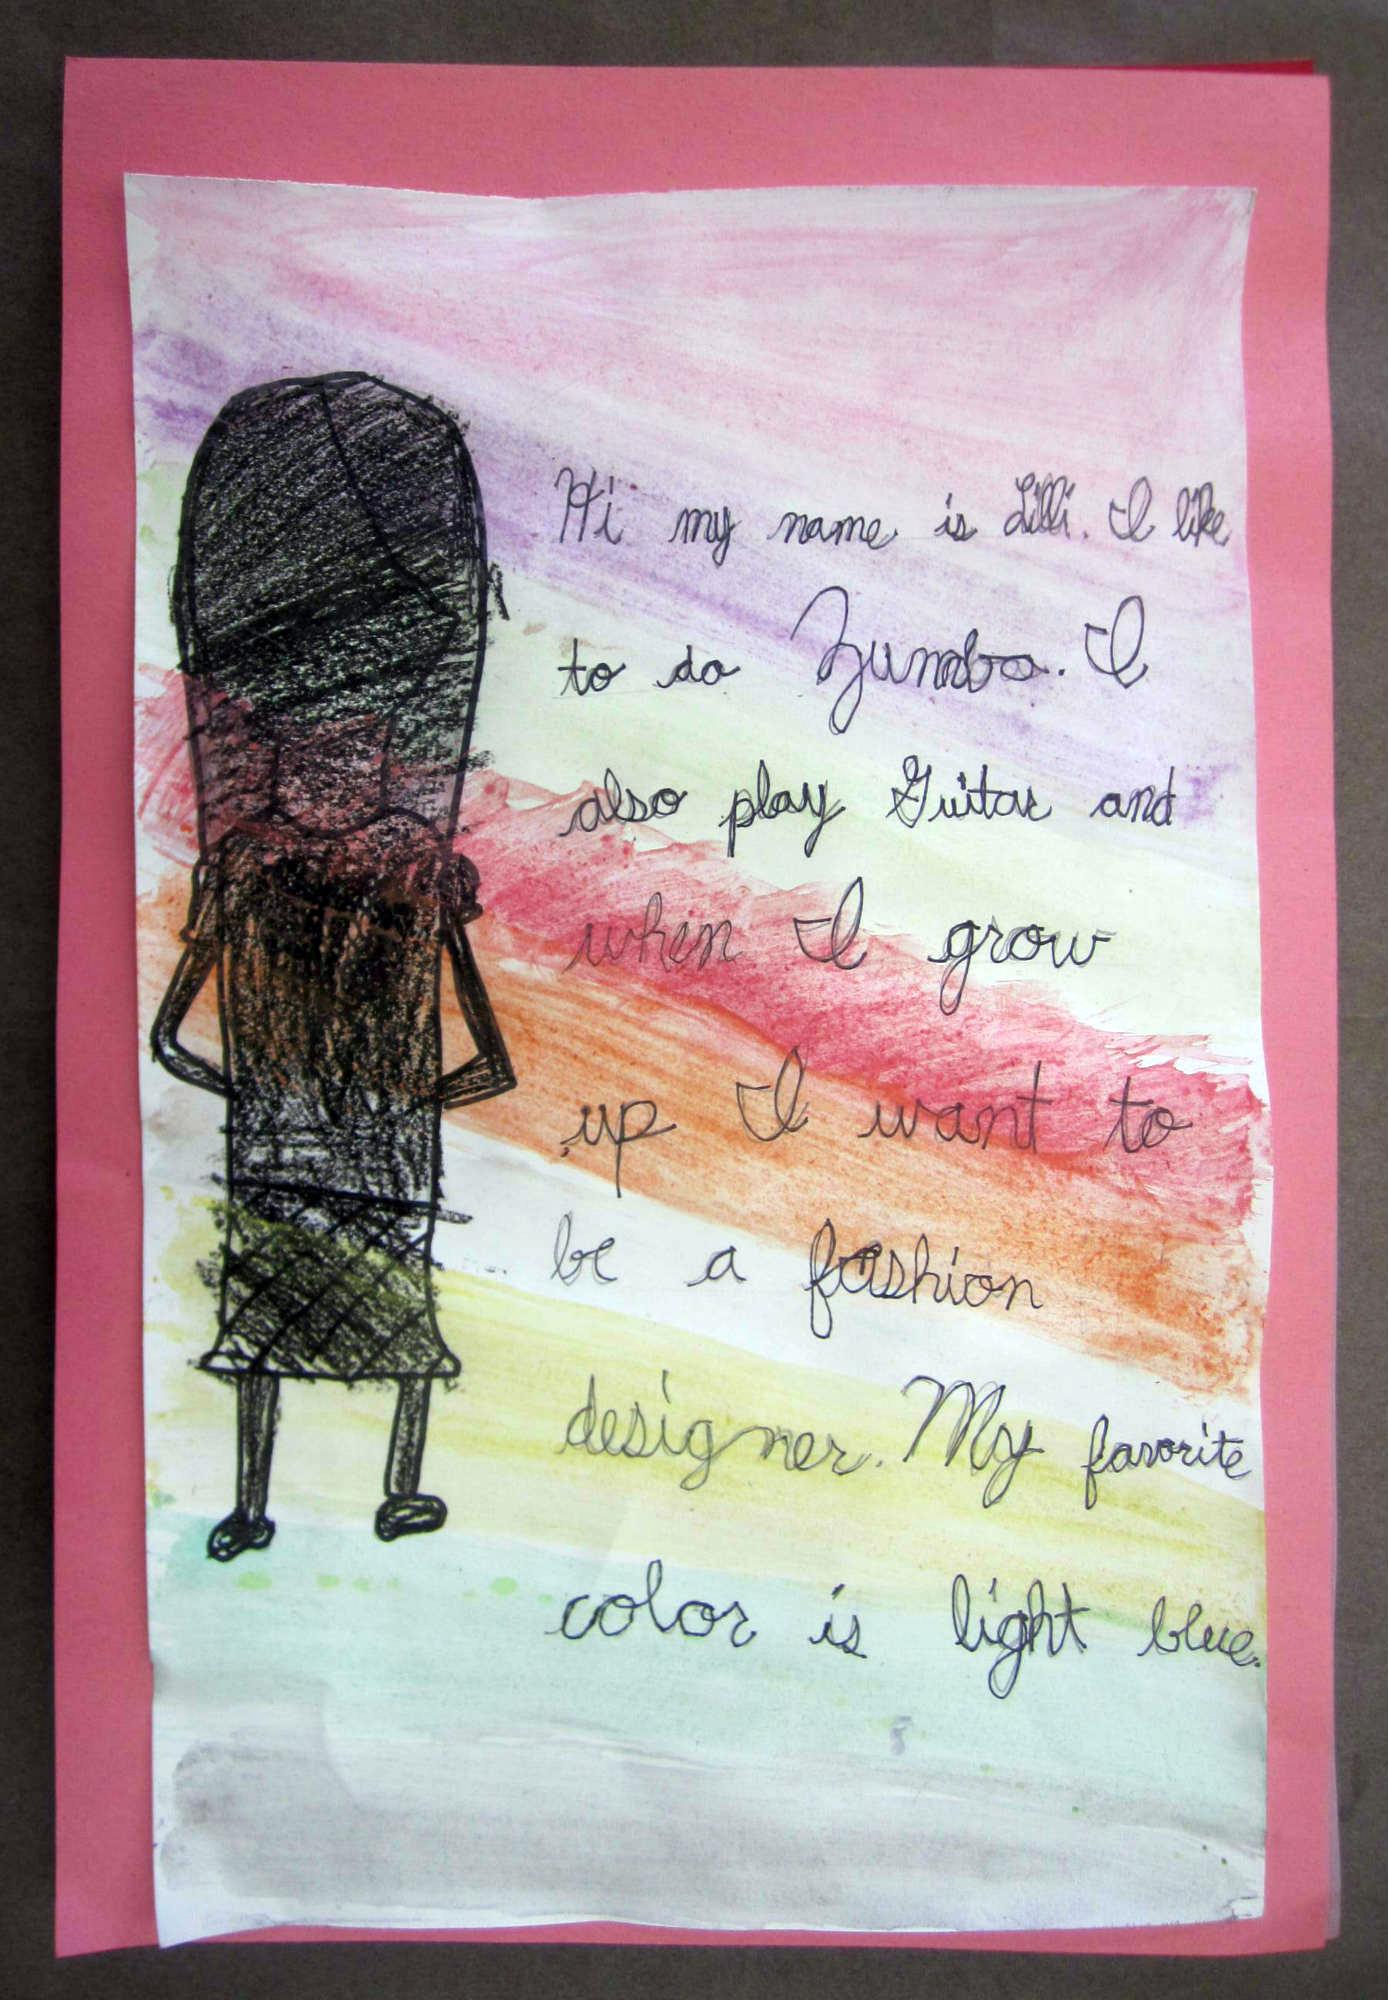 Hi my name is Lilli. I like
to do Zumba. I
also play Guitar and
when I grow
up I want to
be a fashion
designer. My favorite
color is light blue.